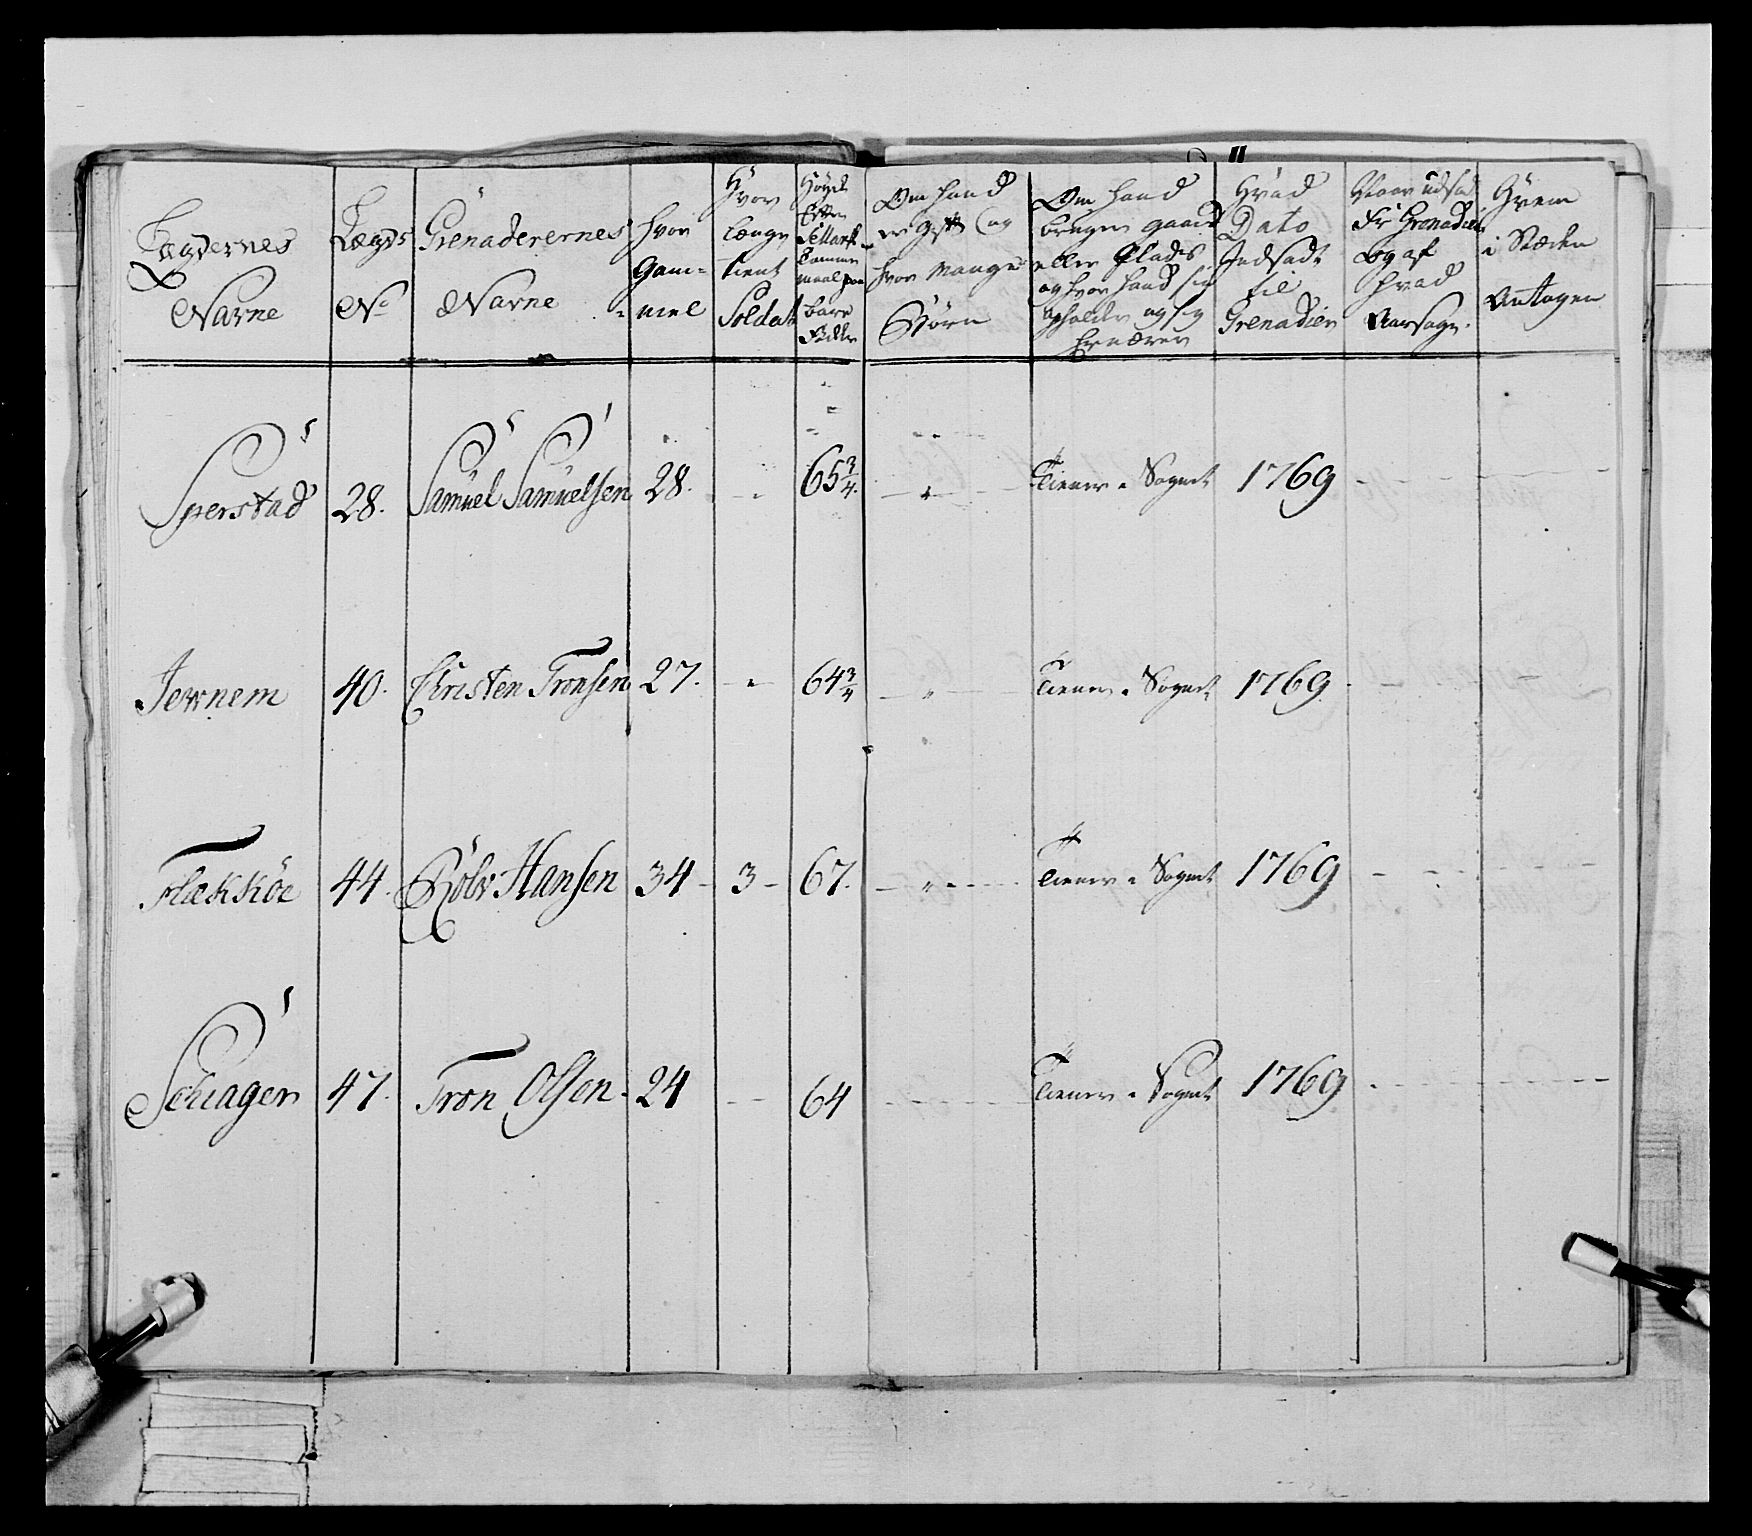 Lægdernes Navne
Lægds No
Grenaderernes Navne
Hvor Gam= mel
Hvor længe tient Soldat
Høyde Efter
bare Födder
Om hand er gift og hvor mange Börn
Om hand bruger gaard eller Plads og hvor hand sig opholder og sig Ernærer
Hvad Dato Indsadt til Grenadeer
Naar udsadt Fr Grenadeer og af hvad Aarsage.
Hvem i Stæden Antagen
Sperstad 28. Samuel Samuelsen 28. - 65 3/4. - Tiener i Sognet 1769
Jernem 40. Christen Tronsen 27. - 64 3/4 - Tiener i Sognet 1769.
Flækköe 44. Rolv Hansen 34 - 3 - 67. - Tiener i Sognet 1769
Schager 47. Tron Olsen. 24 - 64 - Tiener i Sognet 1769